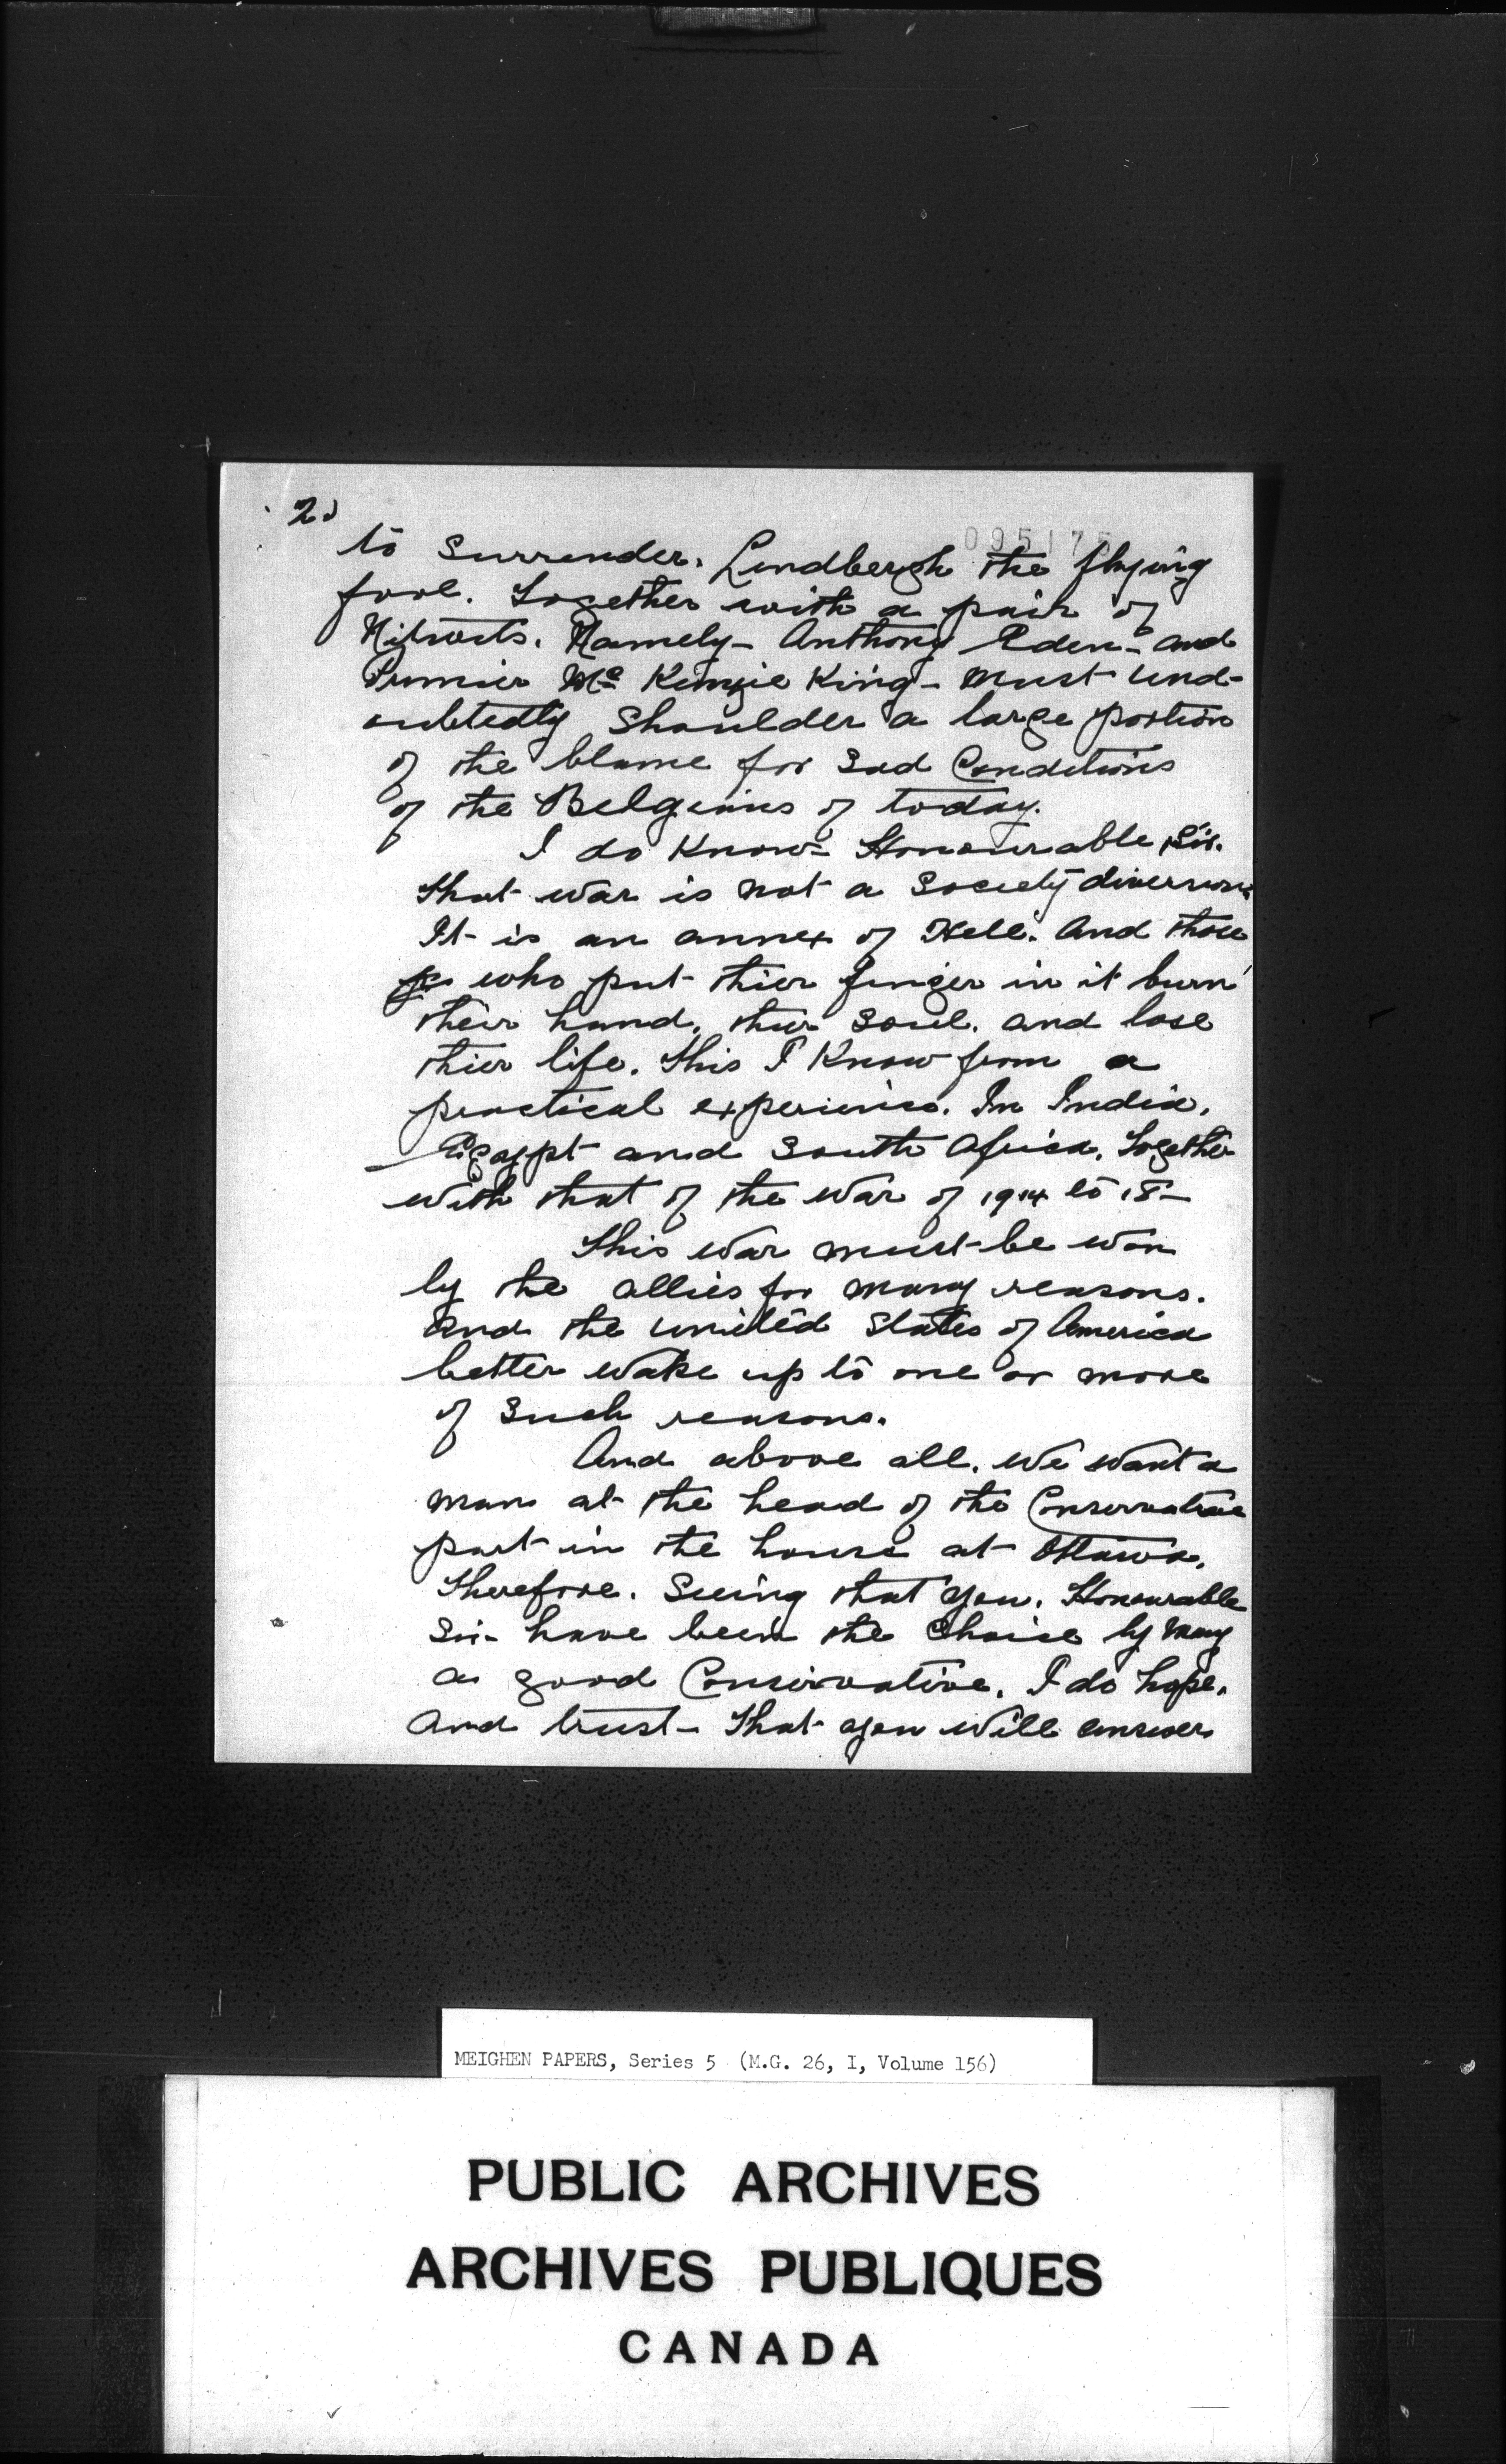 2.)
095175
to Surrender. Lindbergh the flying
fool. Together with a pair of
Nitwits. Namely - Anthony Eden - and
Premier Mc Kenzie King - must und-
oubtedly Shoulder a large portion
of the blame for Sad Conditions
of the Belgiums of today.
I do Know - Honourable Sir.
that war is not a Society diversion.
It is an annex of Hell. And those
who put thier finger in it burn
their hand, thier Soul. and lose
thier life. This I Know from a
practical experience. In India.
Egypt and South Africa. Together
with that of the War of 1914 to 18 -
This War must be won
by the allies for many reasons.
And the United States of America
better wake up to one or more
of Such reasons.
And above all. We want a
man at the head of the Conservative
part in the house at Ottawa.
Therefore. Seeing that you. Honourable
Sir - have been the Choice by many
a good Conservative. I do hope.
And trust - that you will answer
MEIGHEN PAPERS, Series 5 (M.G. 26, I, Volume 156)
PUBLIC ARCHIVES
ARCHIVES PUBLIQUES
CANADA